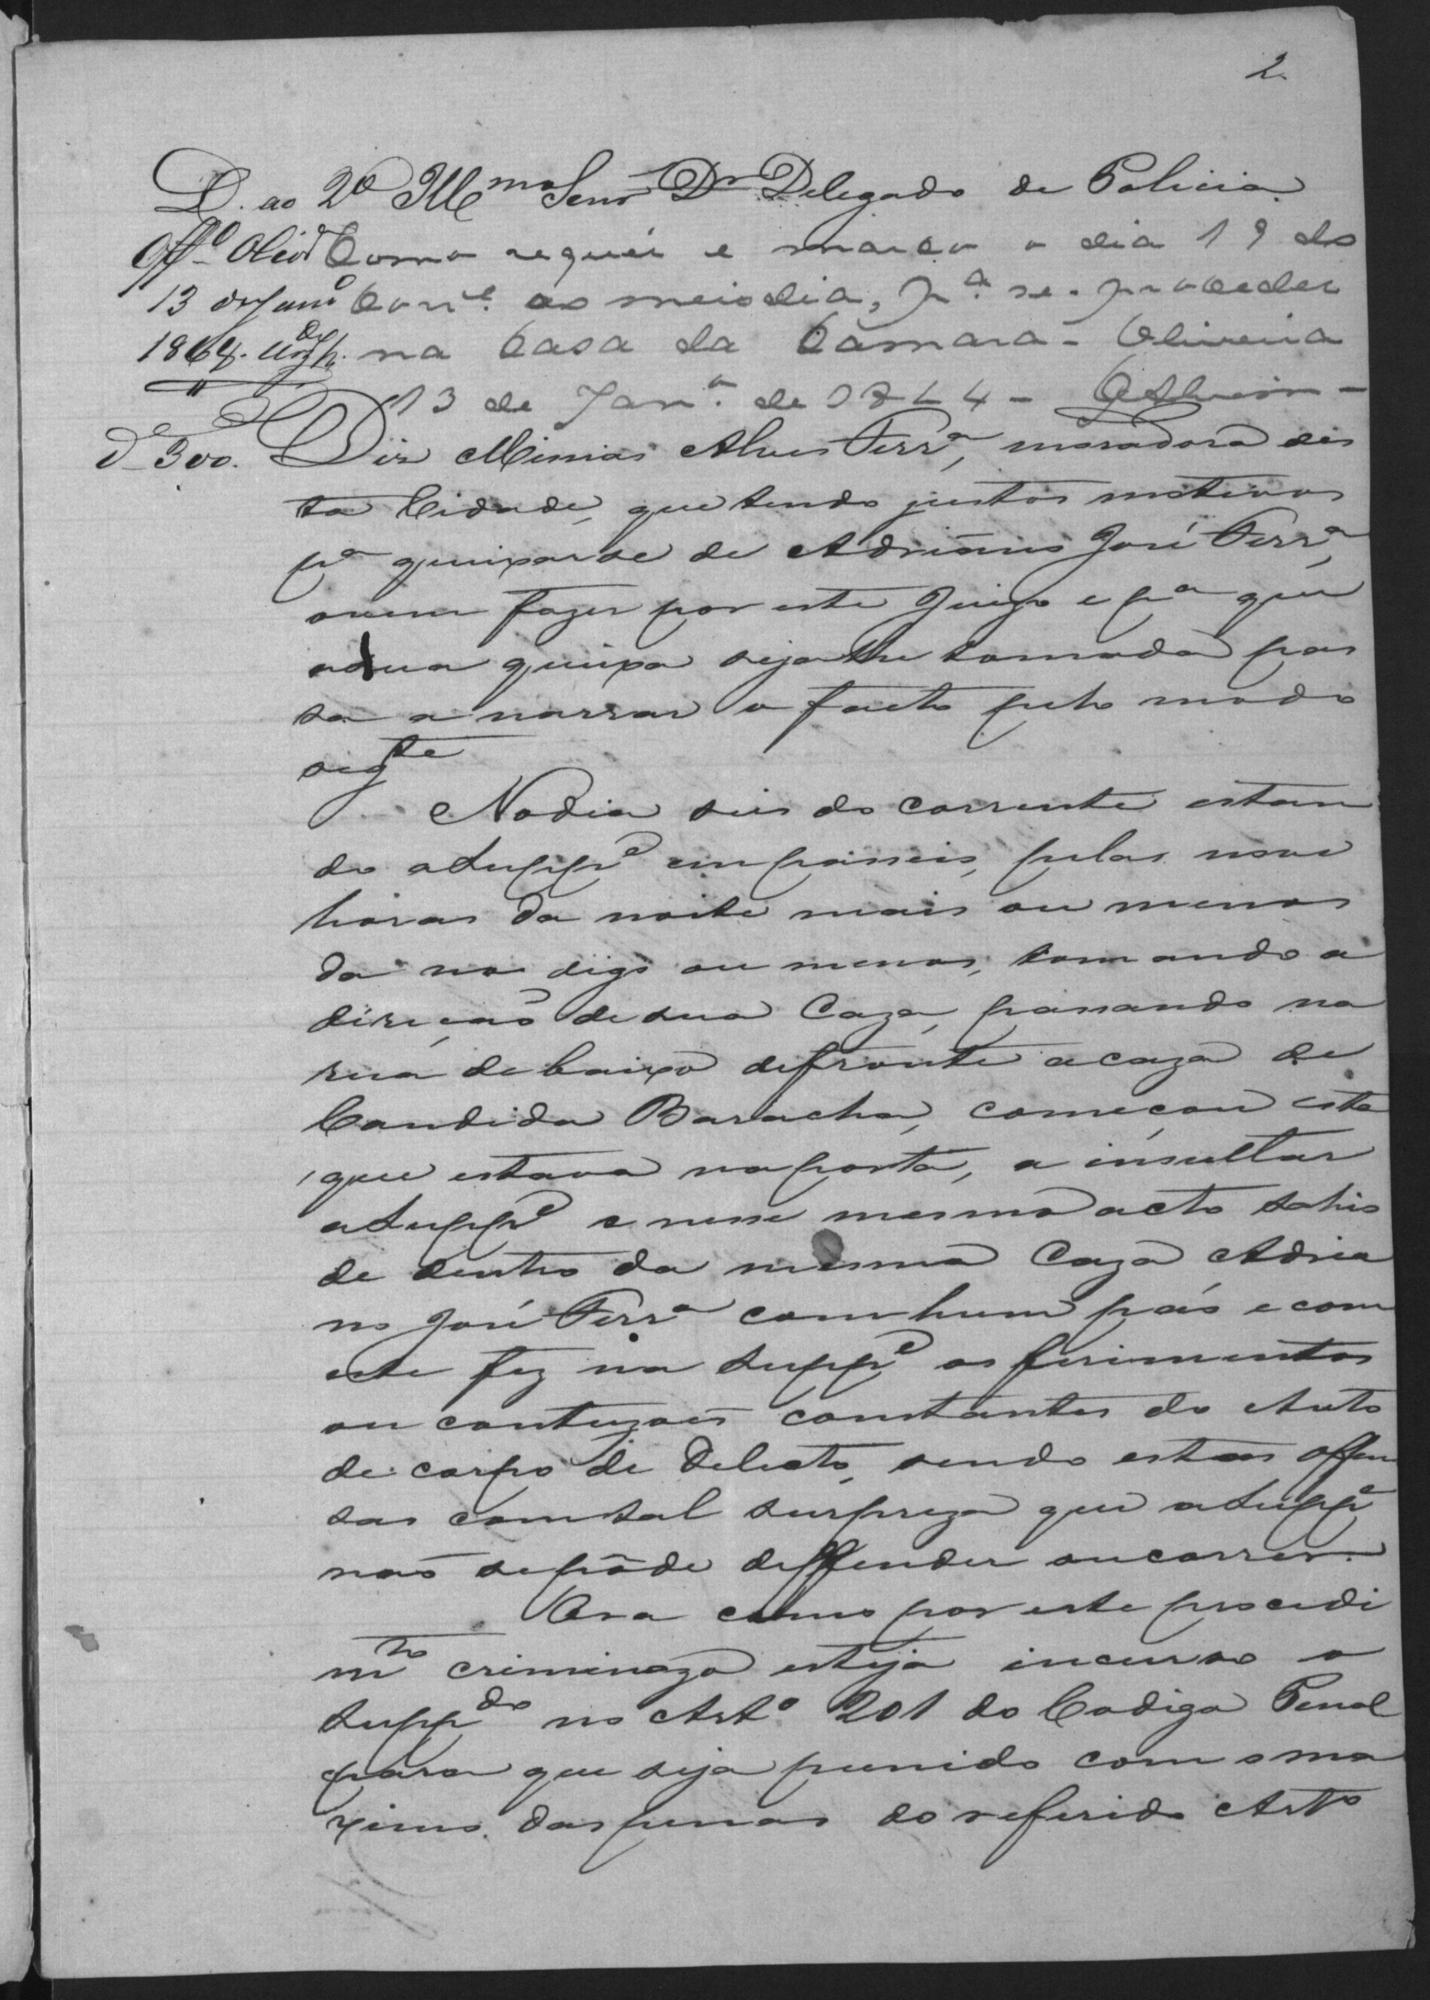 2.
D. ao 2º Illmo Senr Dr Delegado de Policia
Offº Olivª Como requer e marco o dia 19 do
13 de Janº Corre. ao meio dia, pª. se proceder
1864. na Casa da Camara - Oliveira
13 de Janº. de 1864 -
Dº 300. Diz Messias Alves Ferrª, moradora des
ta Cidade, que tendo justos motivos
pª queixarse de Adriano José Ferrª,
o vem fazer por este Juizo e pª que
a sua queixa seja lhe tomada pas
sa a narrar o facto pelo modo
segte
No dia seis do corrente estan
do a Suppe em passeis, pelas nove
horas da noite mais ou menos
da no digo ou menos, tomando a
direcaõ de sua Caza, passando na
rua de baixo defronte a caza de
Candida Baracha, começou esta
que estava na porta, a insultar
a Suppe e nesse mesmo acto sahio
de dentro da mesma Caza Adria
no José Ferrª com hum páo e com
este fez na Suppe os ferimentos
ou contuzoēs constantes do Auto
de corpo de Delicto, sendo estas offen
sas com tal surpreza que a Suppe
naõ se pôde deffender ou correr.
Ora como por este procedi
mto criminozo esteja incurso o
Suppdo no Artº 201 do Codigo Penal
para que seja punido com o ma
ximo das penas do referido Arto